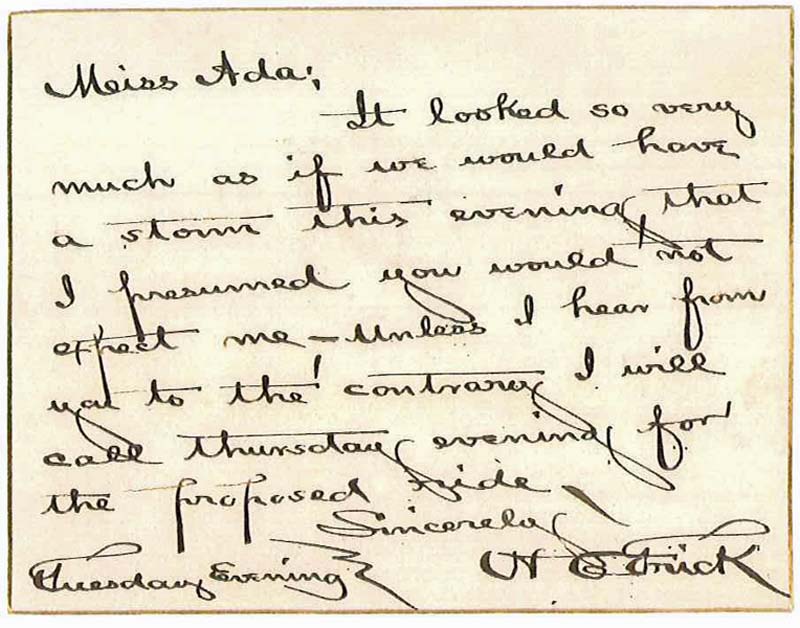 Miss Ada;
It looked so very
much as if we would have
a storm this evening, that
I presumed you would not
expect me — Unless I hear from
you to the contrary I will
call Thursday evening for
the proposed ride
Sincerely
Tuesday Evening H C Frick